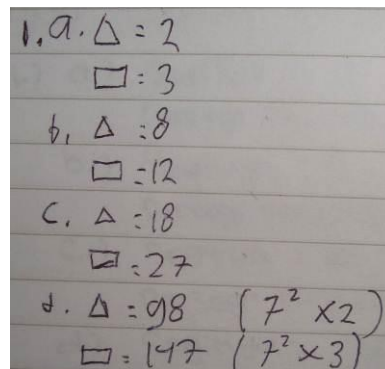 1. a. △ = 2
□ = 3
b. △ = 8
□ = 12
c. △ = 18
□ = 27
d. △ = 98 (7² × 2)
□ = 147 (7² × 3)